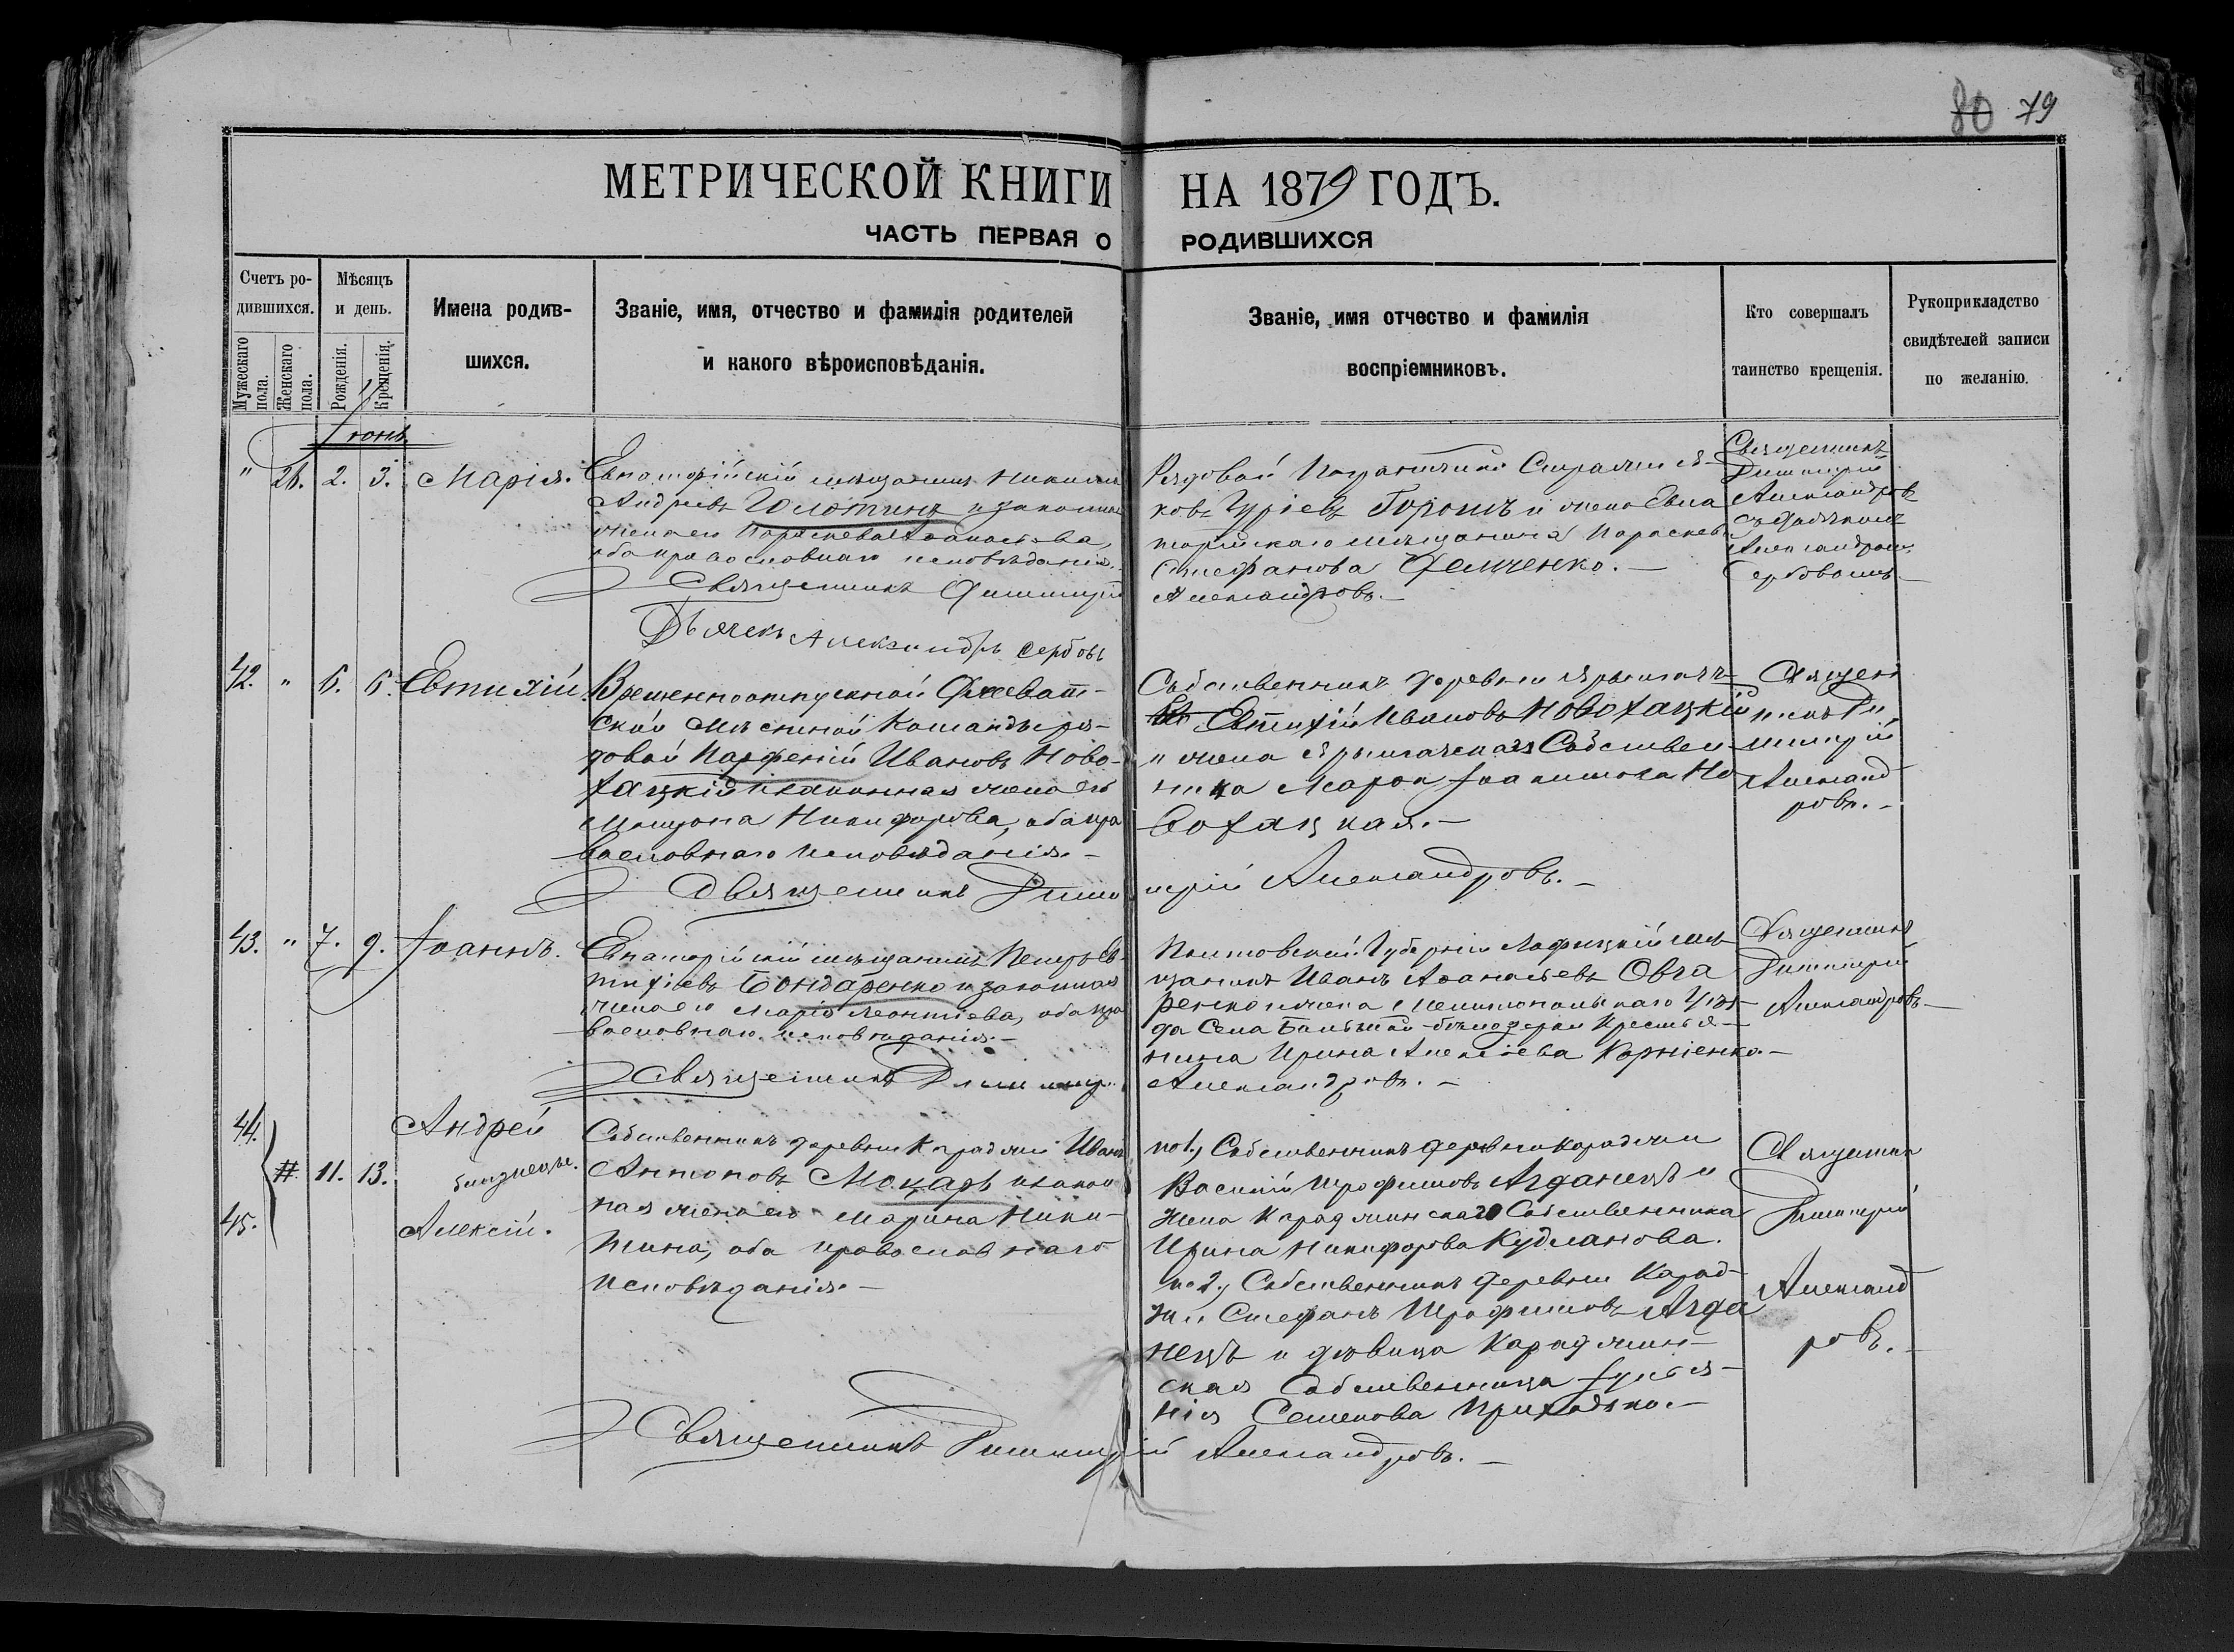 80 79
МЕТРИЧЕСКОЙ КНИГИ НА 1879 ГОДЪ.
ЧАСТЬ ПЕРВАЯ О РОДИВШИХСЯ
Счетъ ро-
дившихся.
Мужескаго пола.
Женскаго пола.
Мѣсяцъ
и день.
Рожденія.
Крещенія.
Имена родив-
шихся.
Званіе, имя, отчество и фамилія родителей
и какого вѣроисповѣданія.
Званіе, имя отчество и фамилія
воспріемниковъ.
Кто совершалъ
таинство крещенія.
Рукоприкладство
свидѣтелей записи
по желанію.
Іюнь
" 26. 2. 3. Марія.
Евпаторійскій мѣщанинъ Николай
Андреевъ и законная
жена его Параскева Аѳанасьева,
оба православнаго исповѣданія.
Священникъ Димитрій
Дьячекъ Александръ Сербовъ
Рядовой Пограничной Стражи Я-
ковъ Гуріевъ и жена Евпа
торійскаго мѣщанина Параскева
Стефанова Демченко.—
Александровъ.—
Священникъ
Димитрій
Александровъ
съ дьячкомъ
Александромъ
Сербовымъ.—
42. " 6. 6. Евтихій.
Временноотпускной
ской Мѣстной Команды ря-
довой Парфеній Ивановъ Ново-
хацкій и законная жена его
Матрона Никифорова, оба пра
вославнаго исповѣданія.—
Священникъ Дими
Собственникъ деревни
Евтихій Ивановъ Новохацкій
и жена Собствен-
ника Марѳа Іоакимова Но
вохацкая.—
трій Александровъ.—
Священ
никъ Ди
митрій
Александ
ровъ.—
43. " 7. 9. Іоаннъ.
Евпаторійскій мѣщанинъ Петръ Ев-
тихіевъ Бондаренко и законная
жена его Марія Леонтіева, оба пра
вославнаго исповѣданія.—
Священникъ Димитрій
Полтавской Губерніи мѣ-
щанинъ Иванъ Аѳанасьевъ Овча
ренко и жена Мелитопольскаго Уѣз-
да Села Большой-Бѣлозерки Крестья-
нина Ирина Алексіева Корніенко.—
Александровъ.—
Священникъ
Димитрій
Александровъ—
44. Андрей
# 11. 13. близнецы.
45. Алексій.
Собственникъ деревни Караджи Иванъ
Антоновъ Моцарь и закон
ная жена его Марина Ники-
тина, оба православнаго
исповѣданія.—
по 1., Собственникъ деревни Караджи
Василій Трофимовъ Агданецъ и
жена Караджинскаго Собственника
Ирина Никифорова Кудланова.
по 2., Собственникъ деревни Карад-
жи Стефанъ Трофимовъ Агда
нецъ и дѣвица Караджин-
ская Собственница Іулья-
нія Семенова Приходько.—
Священникъ Димитрій Александровъ.—
Священникъ
Димитрій
Александ
ровъ.—